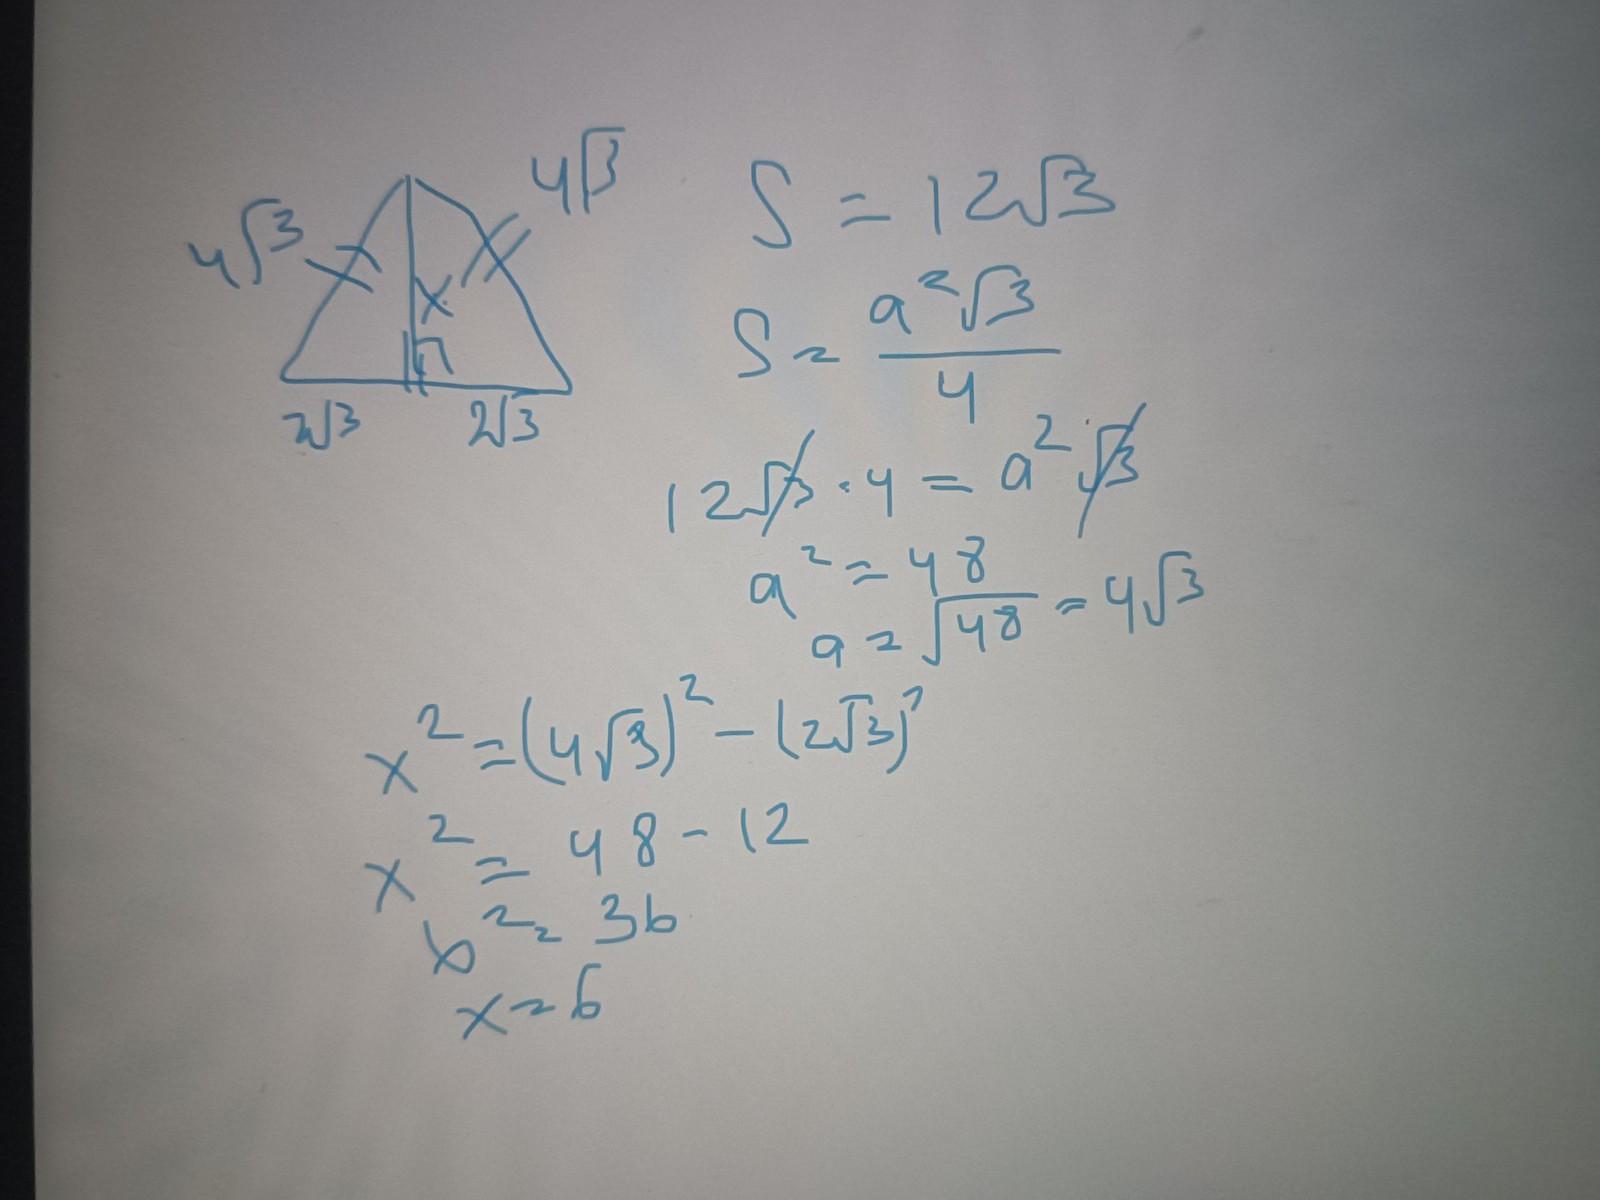 4√3
4√3
x
2√3 2√3
S = 12√3
S = a²√3 / 4
12√3 · 4 = a²√3
a² = 48
a = √48 = 4√3
x² = (4√3)² - (2√3)²
x² = 48 - 12
b² = 36
x = 6